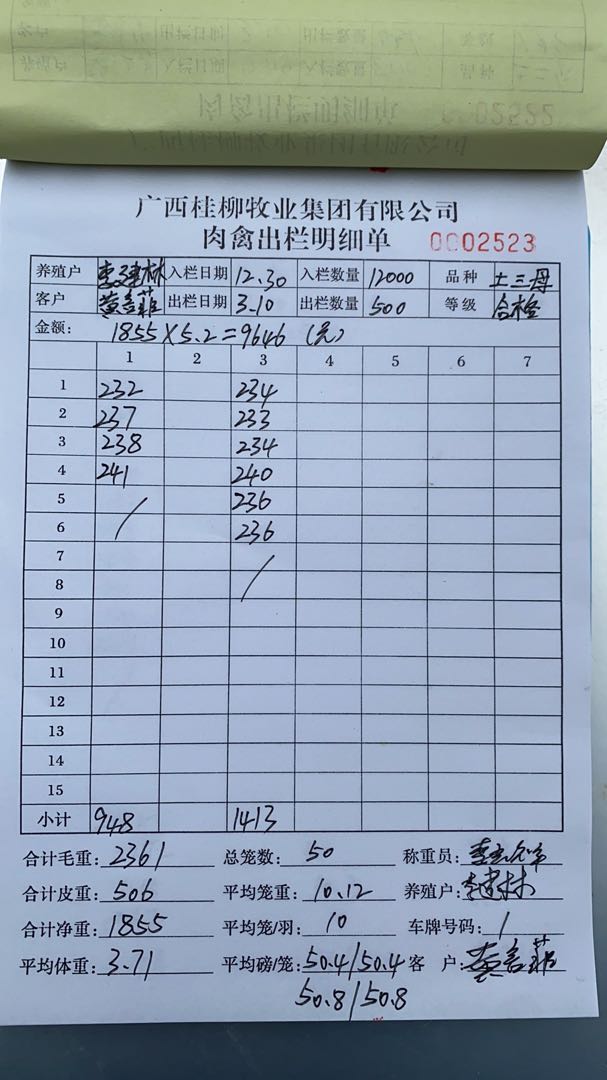 0002522
广西桂柳牧业集团有限公司
肉禽出栏明细单 0002523
养殖户 李建林 入栏日期 12.30 入栏数量 12000 品种 土三母
客户 出栏日期 3.10 出栏数量 500 等级 合格
金额: 1855×5.2=9646 (元)
1 2 3 4 5 6 7
1 232 234
2 237 233
3 238 234
4 241 240
5 / 236
6 236
7 /
8
9
10
11
12
13
14
15
小计 948 1413
合计毛重: 2361 总笼数: 50 称重员:
合计皮重: 506 平均笼重: 10.12 养殖户: 李建林
合计净重: 1855 平均笼/羽: 10 车牌号码: /
平均体重: 3.71 平均磅/笼: 50.4/50.4 客 户:
50.8/50.8